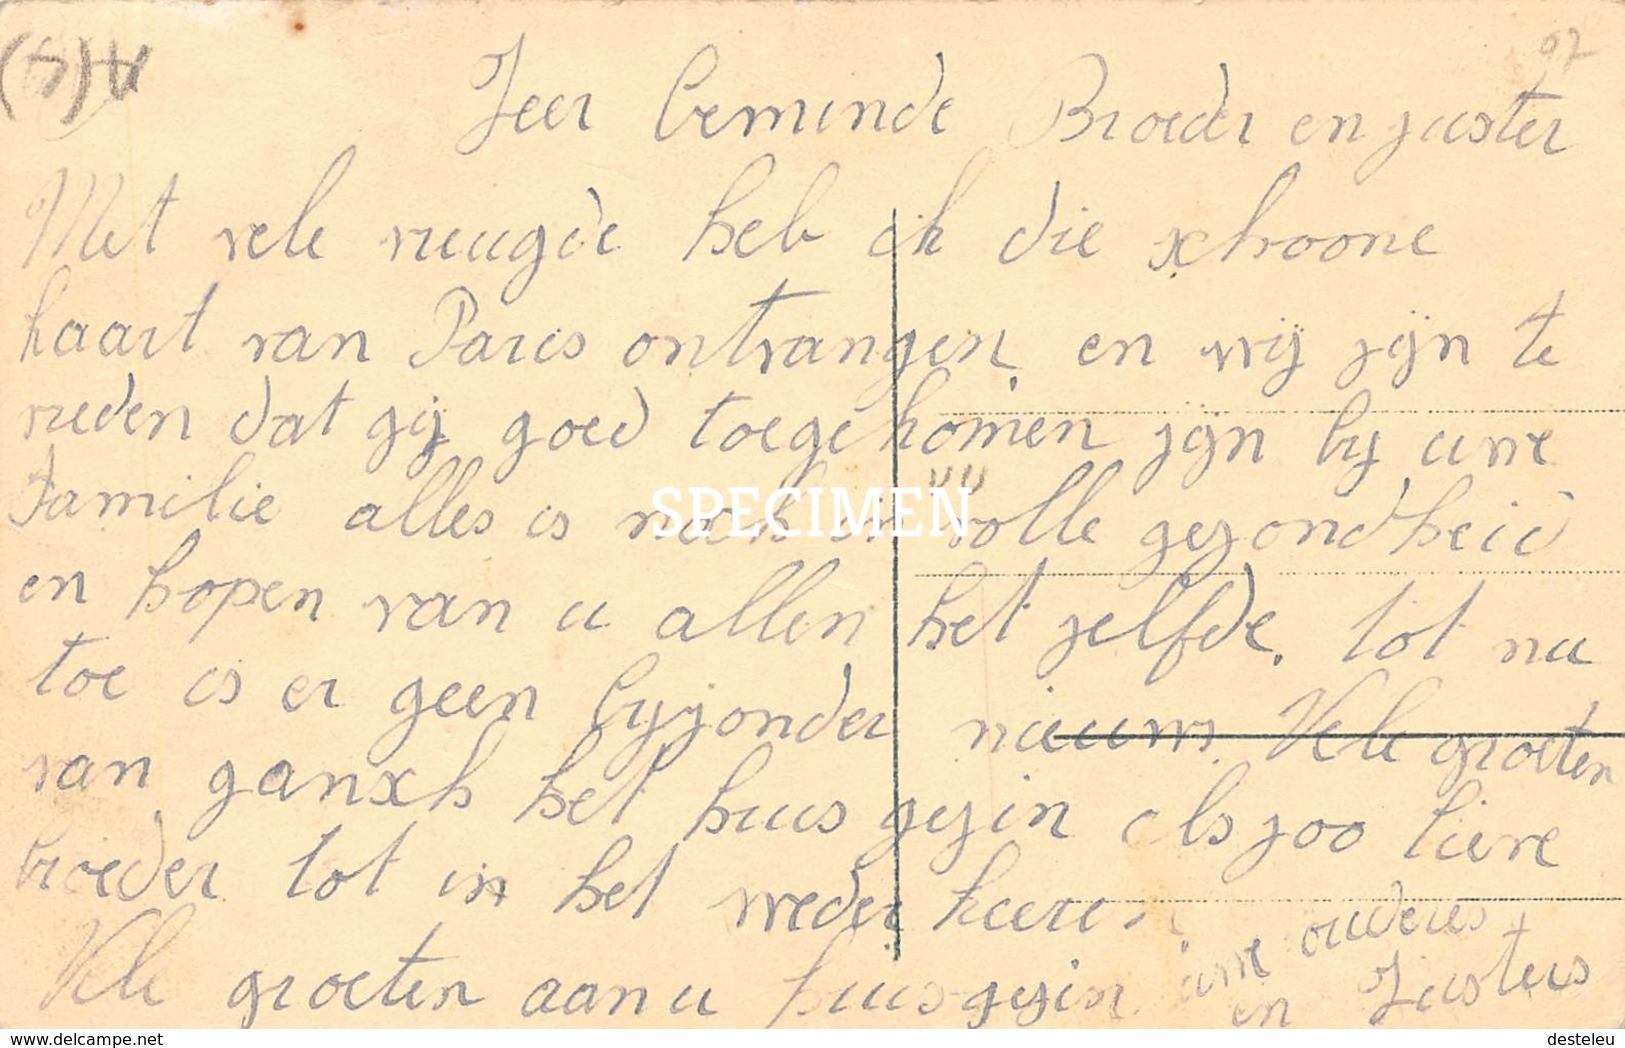 97
Zeer beminde Broeder en zuster
Met vele vreugde heb ik die schoone
kaart van Paris ontvangen en wij zijn te
vreden dat gij goed toegekomen zijn bij uwe
Familie alles is noch in volle gezondheid
SPECIMEN
en hopen van u allen het zelfde. tot nu
toe is er geen byzonder nieuws. Vele groeten
van gansch het huis gezin als zoo lieve
broeder tot in het weder keeren
Vele groeten aan u huisgezin uwe ouders
en Zusters
delcampe.net
desteleu